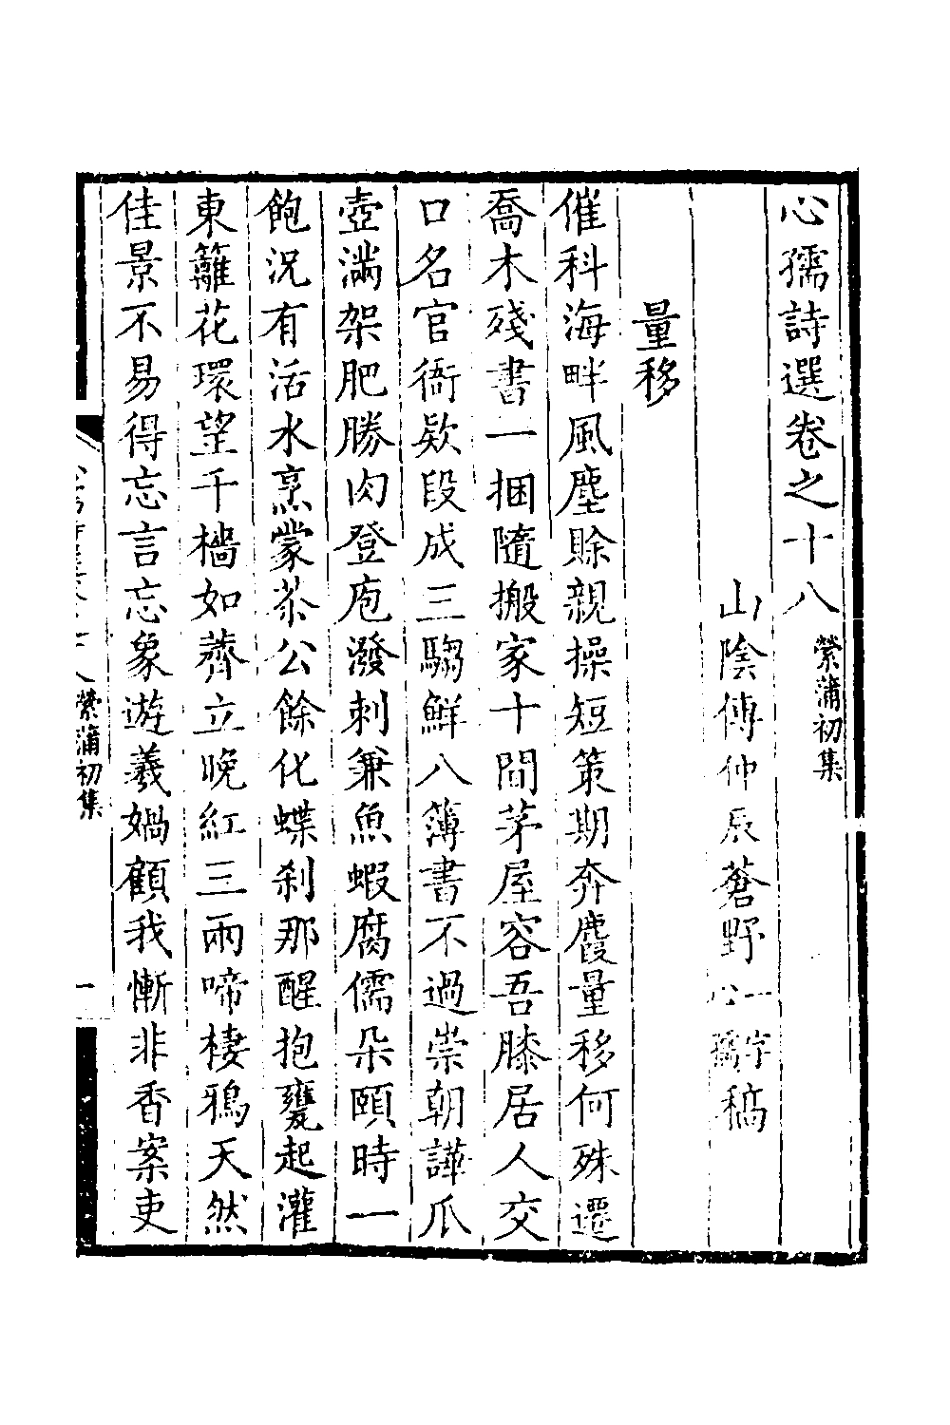 心孺詩選卷之十八 縈蒲初集
山陰傅仲辰蒼野一字心孺稿
量移
催科海畔風塵賒親操短策期奔麏量移何殊遷
喬木殘書一捆隨搬家十間茅屋容吾膝居人交
口名官衙欵段成三騶鮮八簿書不過崇朝譁瓜
壺滿架肥勝肉登庖潑刺兼魚蝦腐儒朵頤時一
飽況有活水烹蒙茶公餘化蝶刹那醒抱甕起灌
東籬花環望千檣如薺立晚紅三兩啼棲鴉天然
佳景不易得忘言忘象遊羲媧顧我慚非香案吏
縈蒲初集
一